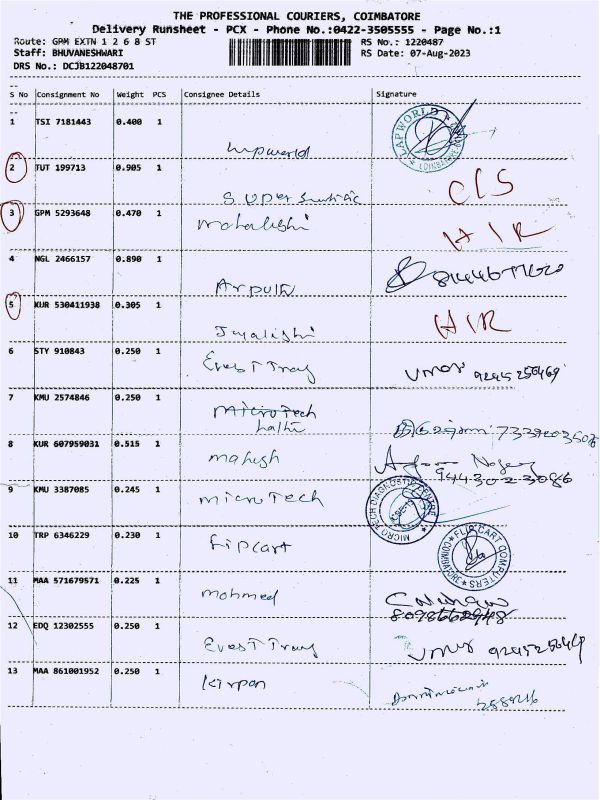 THE PROFESSIONAL COURIERS, COIMBATORE
Delivery Runsheet - PCX - Phone No.:0422-3505555 - Page No.:1
Route: GPM EXTN 1 2 6 8 ST RS No.: 1220487
Staff: BHUVANESHWARI RS Date: 07-Aug-2023
DRS No.: DCJB122048701
S No Consignment No Weight PCS Consignee Details Signature
1 TSI 7181443 0.400 1
LAPWORLD
2 TUT 199713 0.905 1
Super
C/S
3 GPM 5293648 0.470 1
Mahalishi
H/R
4 NGL 2466157 0.890 1
Arputh
5 KUR 530411938 0.305 1
Jyalishi
H/R
6 STY 910843 0.250 1
Evest Tray
umar 9245256469
7 KMU 2574846 0.250 1
MicroTech
Lalthi
8 KUR 607959031 0.515 1
mahesh
9443023086
9 KMU 3387085 0.245 1
microTech
MICRO TECH DIAGNOSTIC CENTRE
10 TRP 6346229 0.230 1
Fipcart
FLIP CART COMPUTERS
COIMBATORE
11 MAA 571679571 0.225 1
mohmed
12 EDQ 12302555 0.250 1
Evest Tray
umar
13 MAA 861001952 0.250 1
Kirpan